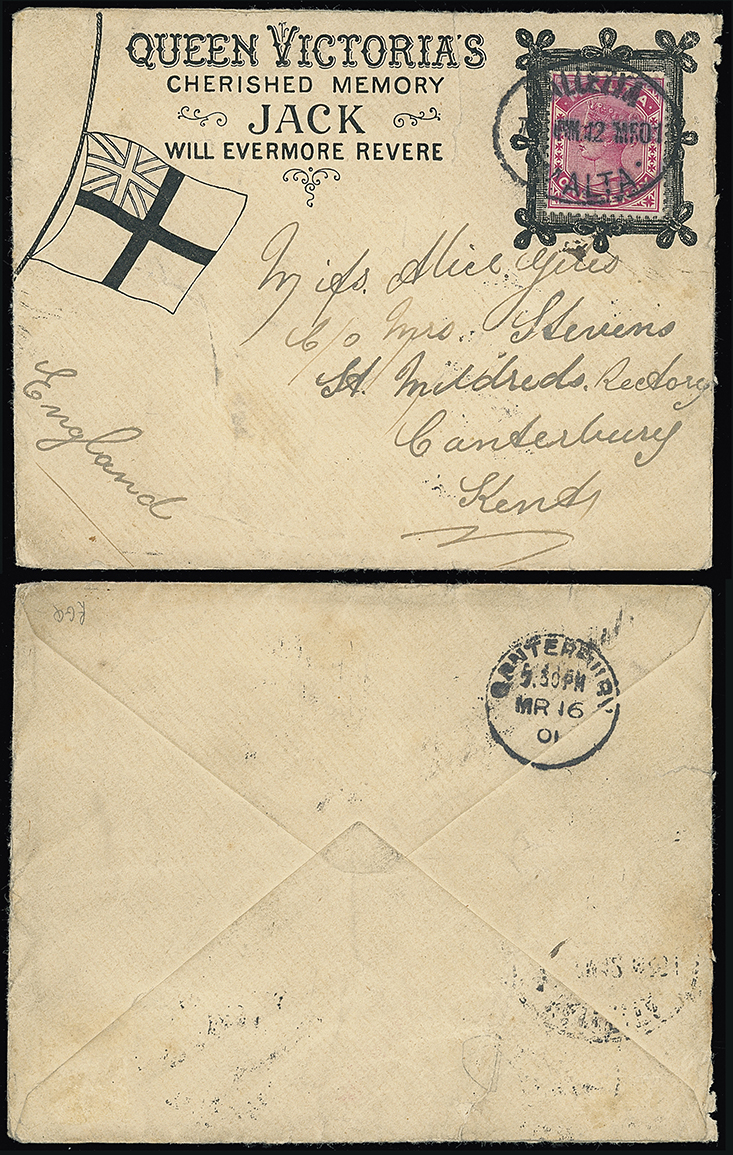 QUEEN VICTORIA'S
CHERISHED MEMORY
JACK
WILL EVERMORE REVERE
VALLETTA
PM 12 MR 01
MALTA
Miss. Alice
c/o Mrs. Stevens
St. Mildreds. Rectory
Canterbury
Kent
England
CANTERBURY
5.30PM
MR 16
01